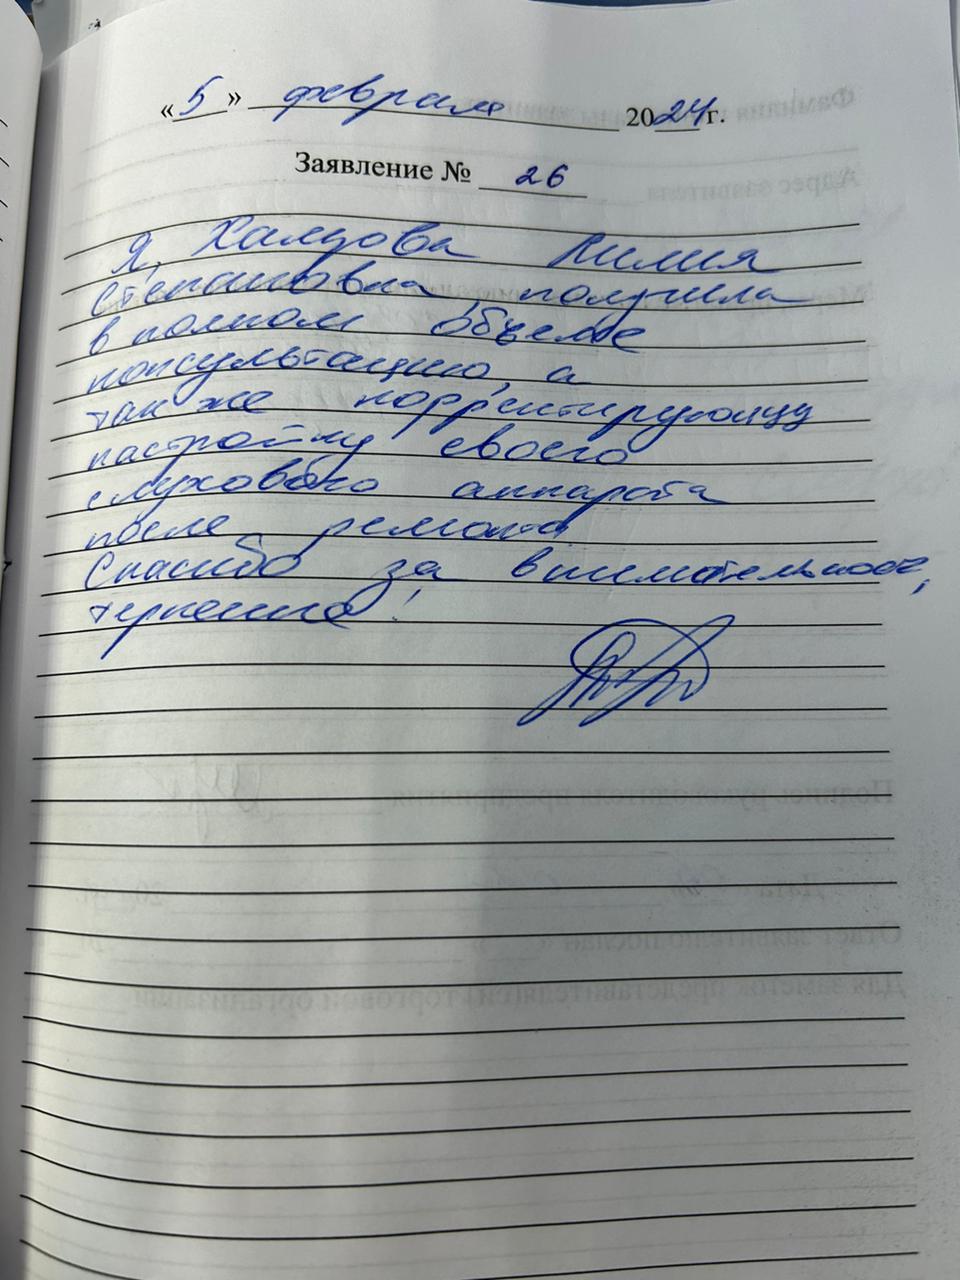 «5» февраля 2024 г.
Заявление № 26
Я, Халцова Лилия
Степановна, получила
в полном объеме
консультацию, а
так же корректирующую
настройку своего
слухового аппарата
после ремонта
Спасибо за внимательность,
терпение!